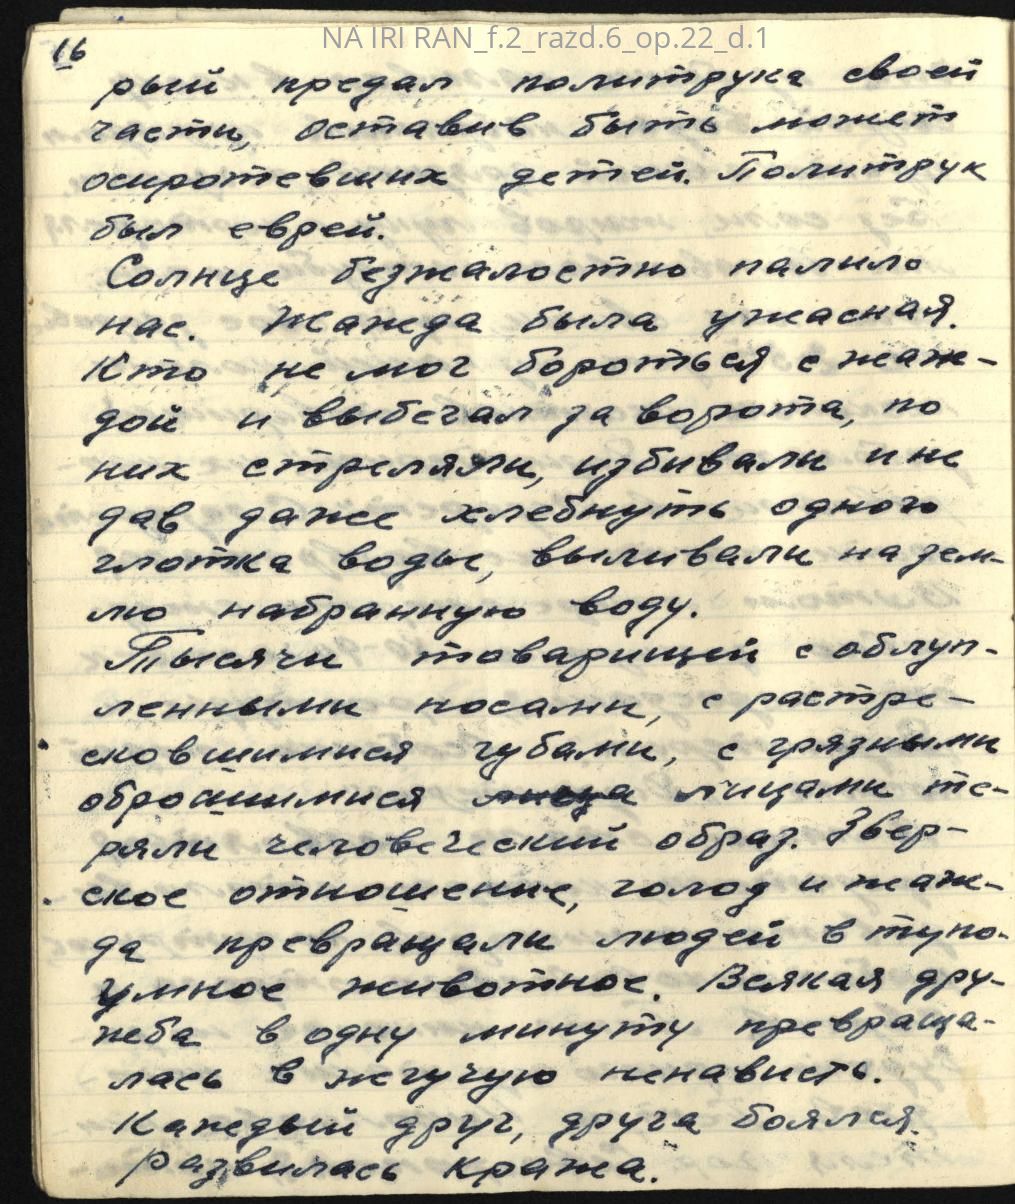 NA IRI RAN_f.2_razd.6_op.22_d.1
16
рый предал политрука своей
части, оставив быть может
осиротевших детей. Политрук
был еврей.
Солнце безжалостно палило
нас. Жажда была ужасная.
Кто не мог бороться с жаж-
дой и выбегал за ворота, по
них стреляли, избивали и не
дав даже хлебнуть одного
глотка воды, выливали на зем-
лю набранную воду.
Тысячи товарищей с облуп-
ленными носами, с растре-
сковшимися губами, с грязными
обросшимися лица лицами те-
ряли человеческий образ. Звер-
ское отношение, голод и жаж-
да превращали людей в тупо-
умное животное. Всякая дру-
жеба в одну минуту превраща-
лась в жгучую ненависть.
Каждый друг, друга боялся.
развилась кража.